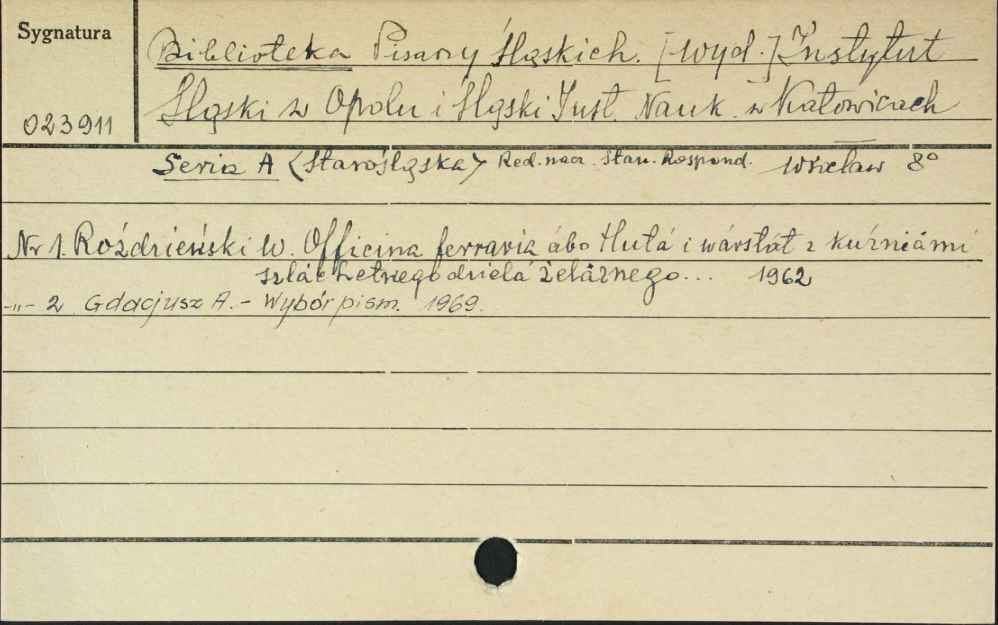 Sygnatura
023911
Biblioteka Pisarzy Śląskich. [wyd.] Instytut
Śląski w Opolu i Śląski Inst. Nauk. w Katowicach
Seria A (Starośląska) Red. nacz. Stan. Rospond. Wrocław 8°
Nr 1. Roździeński W. Officina ferraria ábo Hutá i wárstát z kuźniámi
szláchetnego dzieła żeláznego... 1962
-"- 2 Gdacjusz A. - Wybór pism. 1969.